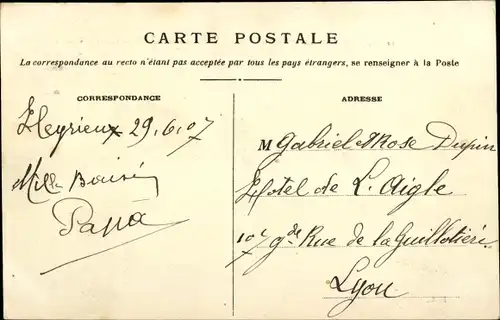 CARTE POSTALE
La correspondance au recto n'étant pas acceptée par tous les pays étrangers, se renseigner à la Poste
CORRESPONDANCE
Heyrieux 29.6.07
Mille Baisers
Papa
ADRESSE
M Gabriel &Rose Dupin
Hotel de L'Aigle
107 gde Rue de la Guillotière
Lyon